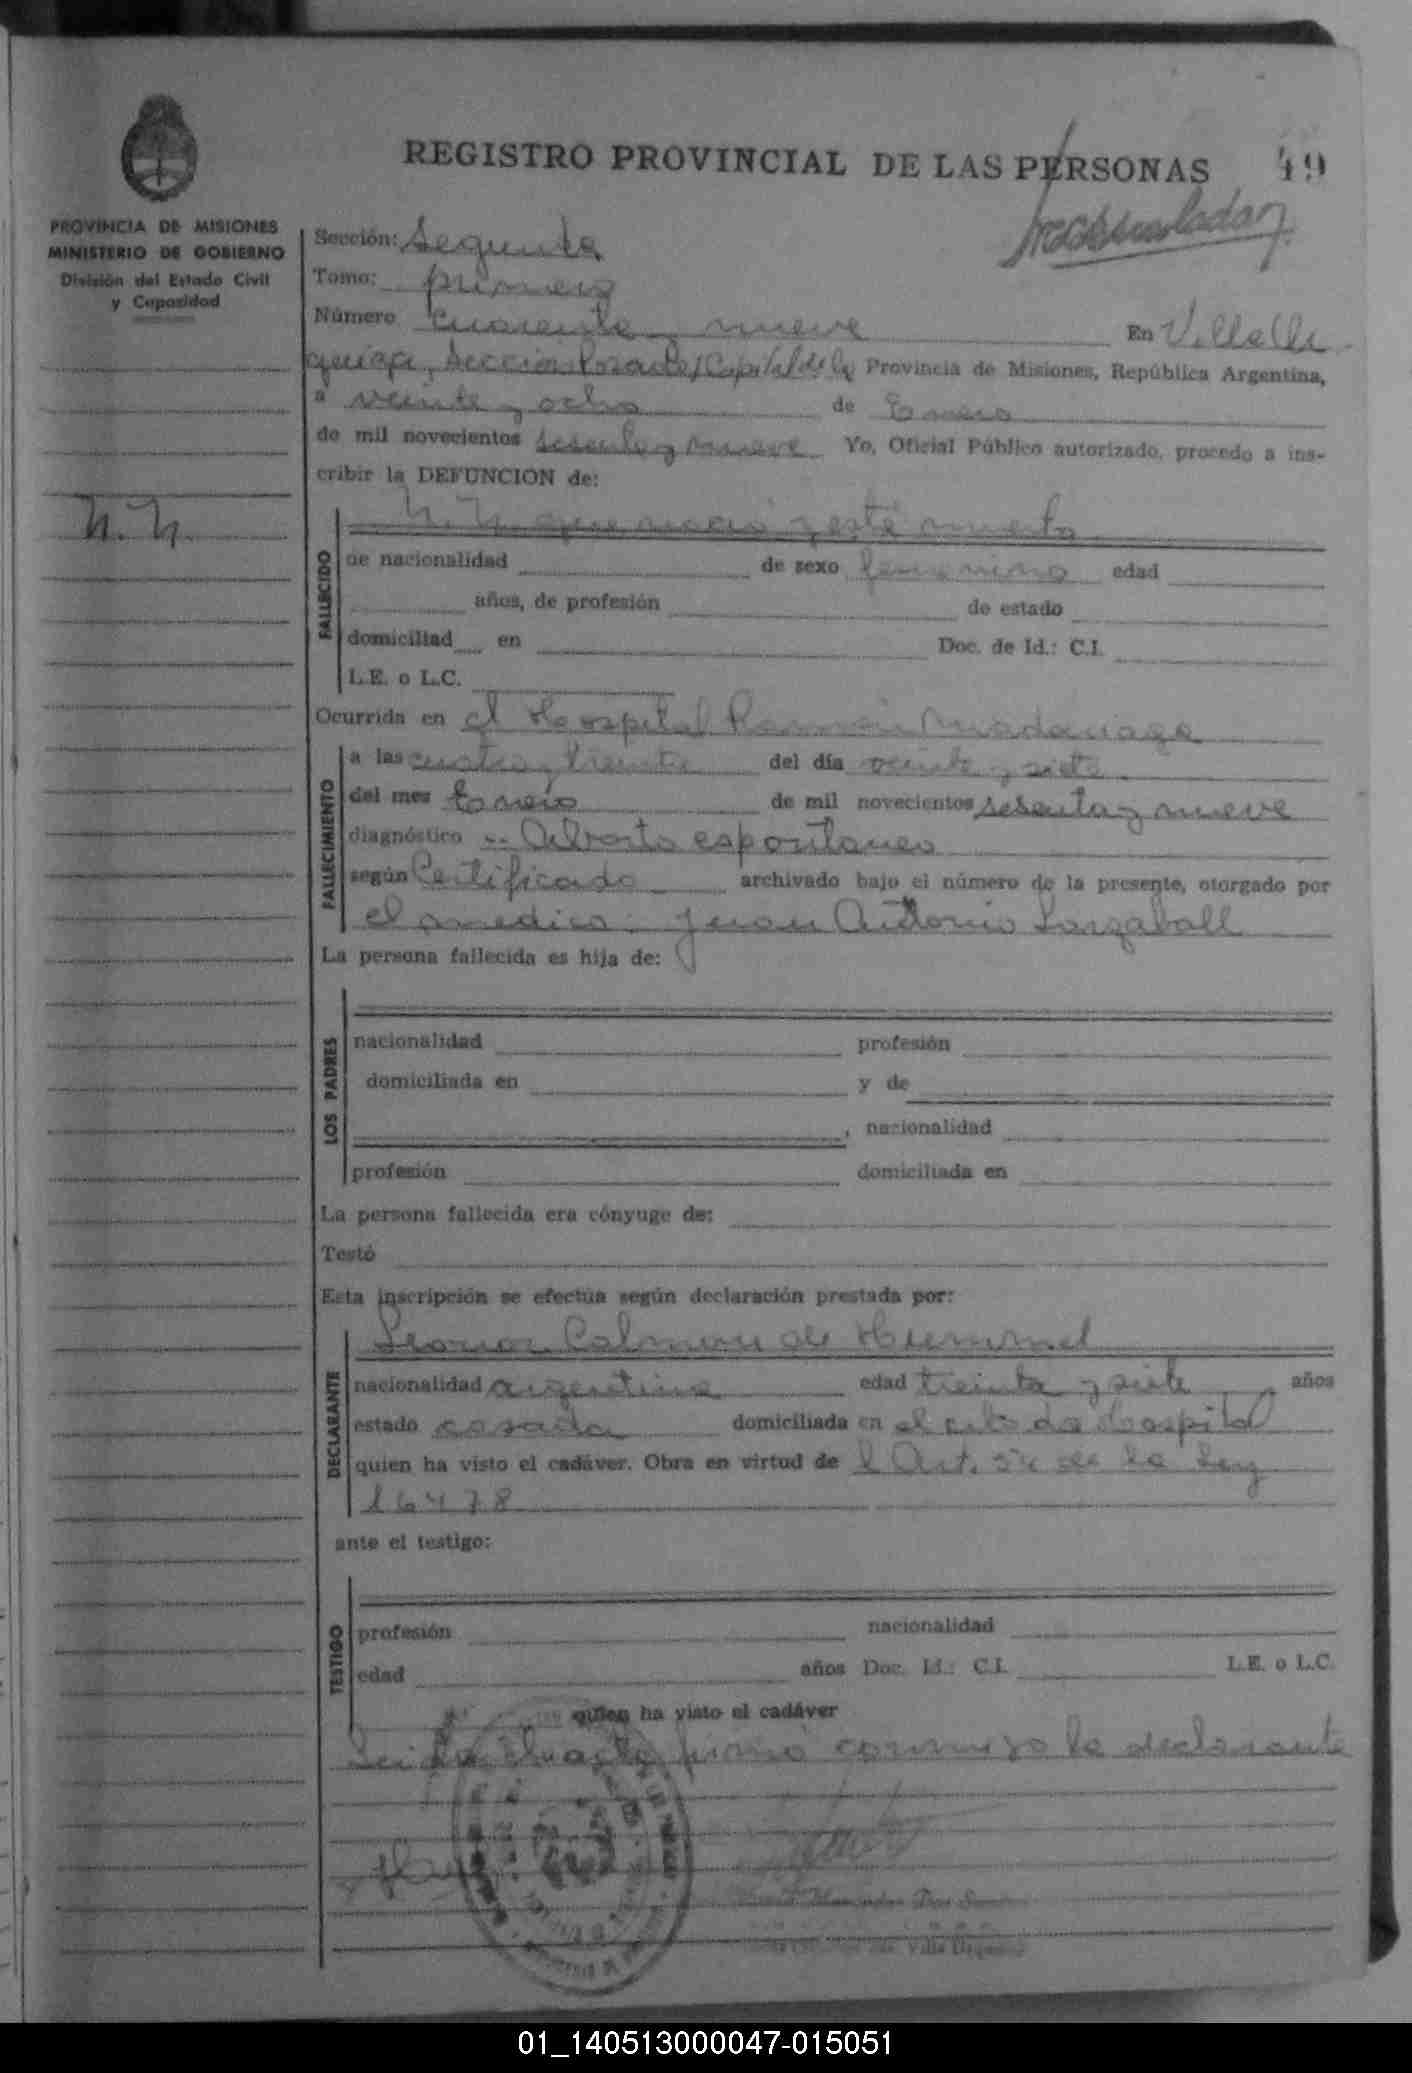 REGISTRO PROVINCIAL DE LAS PERSONAS 49
PROVINCIA DE MISIONES
MINISTERIO DE GOBIERNO
División del Estado Civil
y Capacidad
Sección: Segunda
Tomo: primero
Número cuarenta y nueve En Villa Ur
quiza, Sección Posadas, Capital de la Provincia de Misiones, República Argentina,
a veinte y ocho de Enero
de mil novecientos sesenta y nueve Yo, Oficial Público autorizado, procedo a ins-
cribir la DEFUNCION de:
N.N.
N.N. que nació y esté muerto
FALLECIDO
de nacionalidad de sexo femenino edad
años, de profesión de estado
domiciliad en Doc. de Id.: C.I.
L.E. o L.C.
Ocurrida en el Hospital Ramón Madariaga
FALLECIMIENTO
a las cuatro y treinta del día veinte y siete
del mes Enero de mil novecientos sesenta y nueve
diagnóstico -- Alborto espontaneo
según Certificado archivado bajo el número de la presente, otorgado por
el medico: Juan Antonio
La persona fallecida es hija de:
LOS PADRES
nacionalidad profesión
domiciliada en y de
, nacionalidad
profesión domiciliada en
La persona fallecida era cónyuge de:
Testó
Esta inscripción se efectúa según declaración prestada por:
DECLARANTE
Leonor Colman de Hummel
nacionalidad argentina edad treinta y siete años
estado casada domiciliada en el cit do Hospital
quien ha visto el cadáver. Obra en virtud de l Art. de la Ley
16478
ante el testigo:
TESTIGO
profesión nacionalidad
edad años Doc. Id.: C.I. L.E. o L.C.
quien ha visto el cadáver
Leida el acta firmó conmigo la declarante
01_140513000047-015051